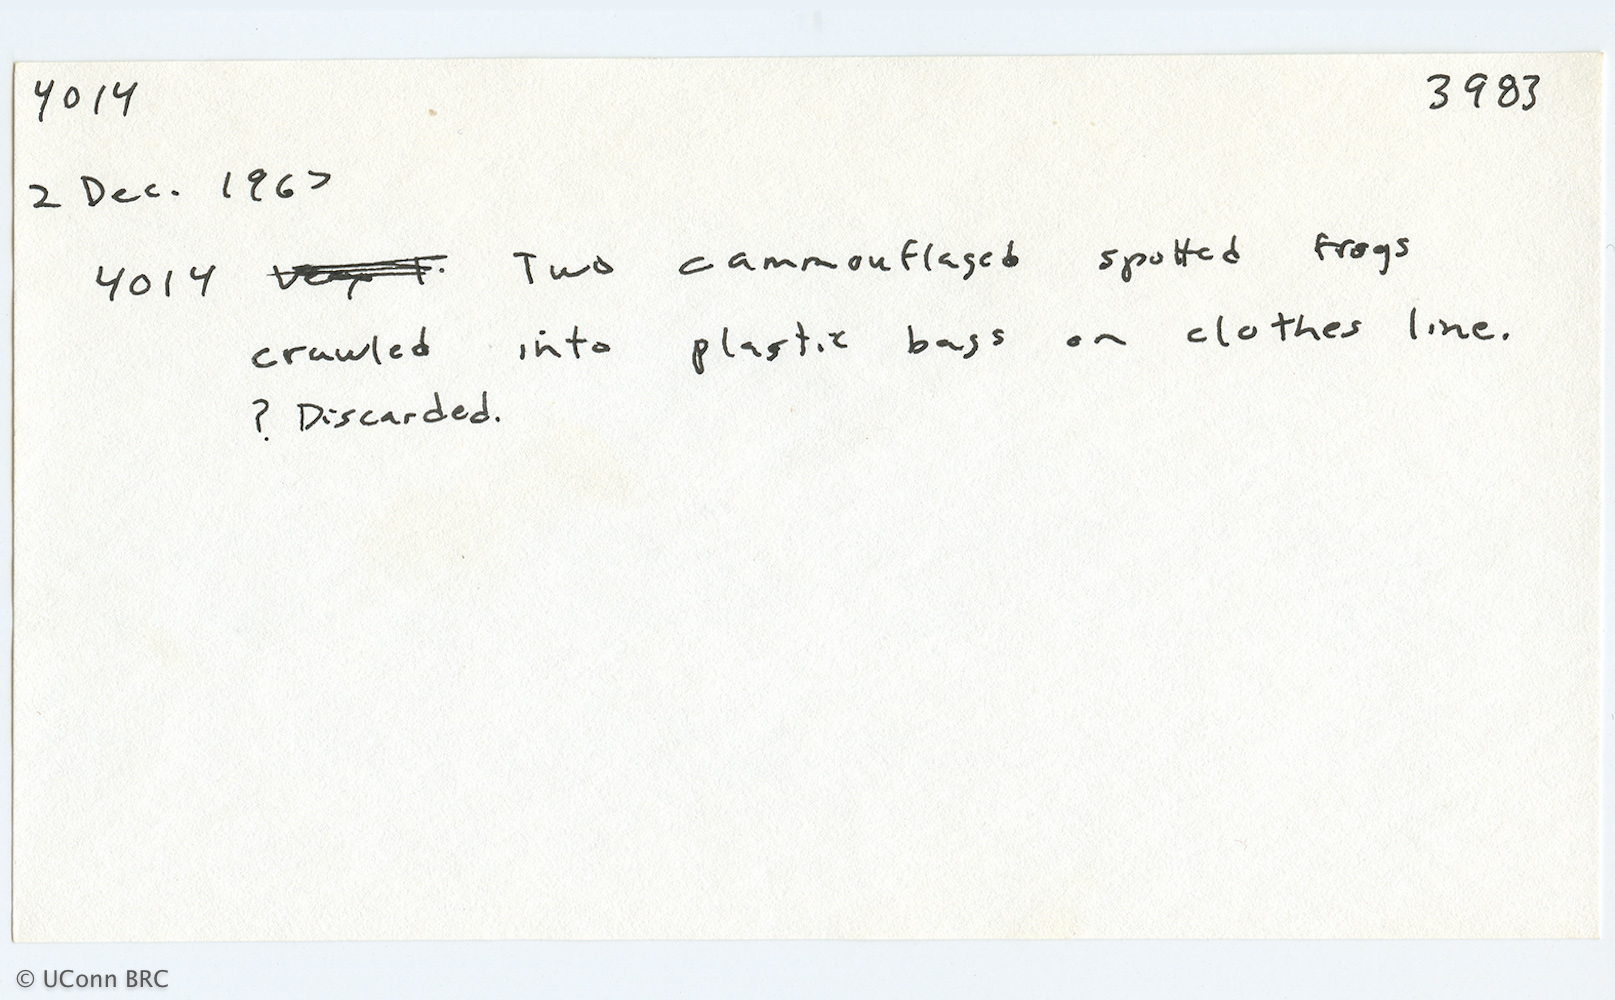 4014 3983
2 Dec. 1967
4014 Two cammouflaged spotted frogs
crawled into plastic bags on clothes line.
? Discarded.
© UConn BRC